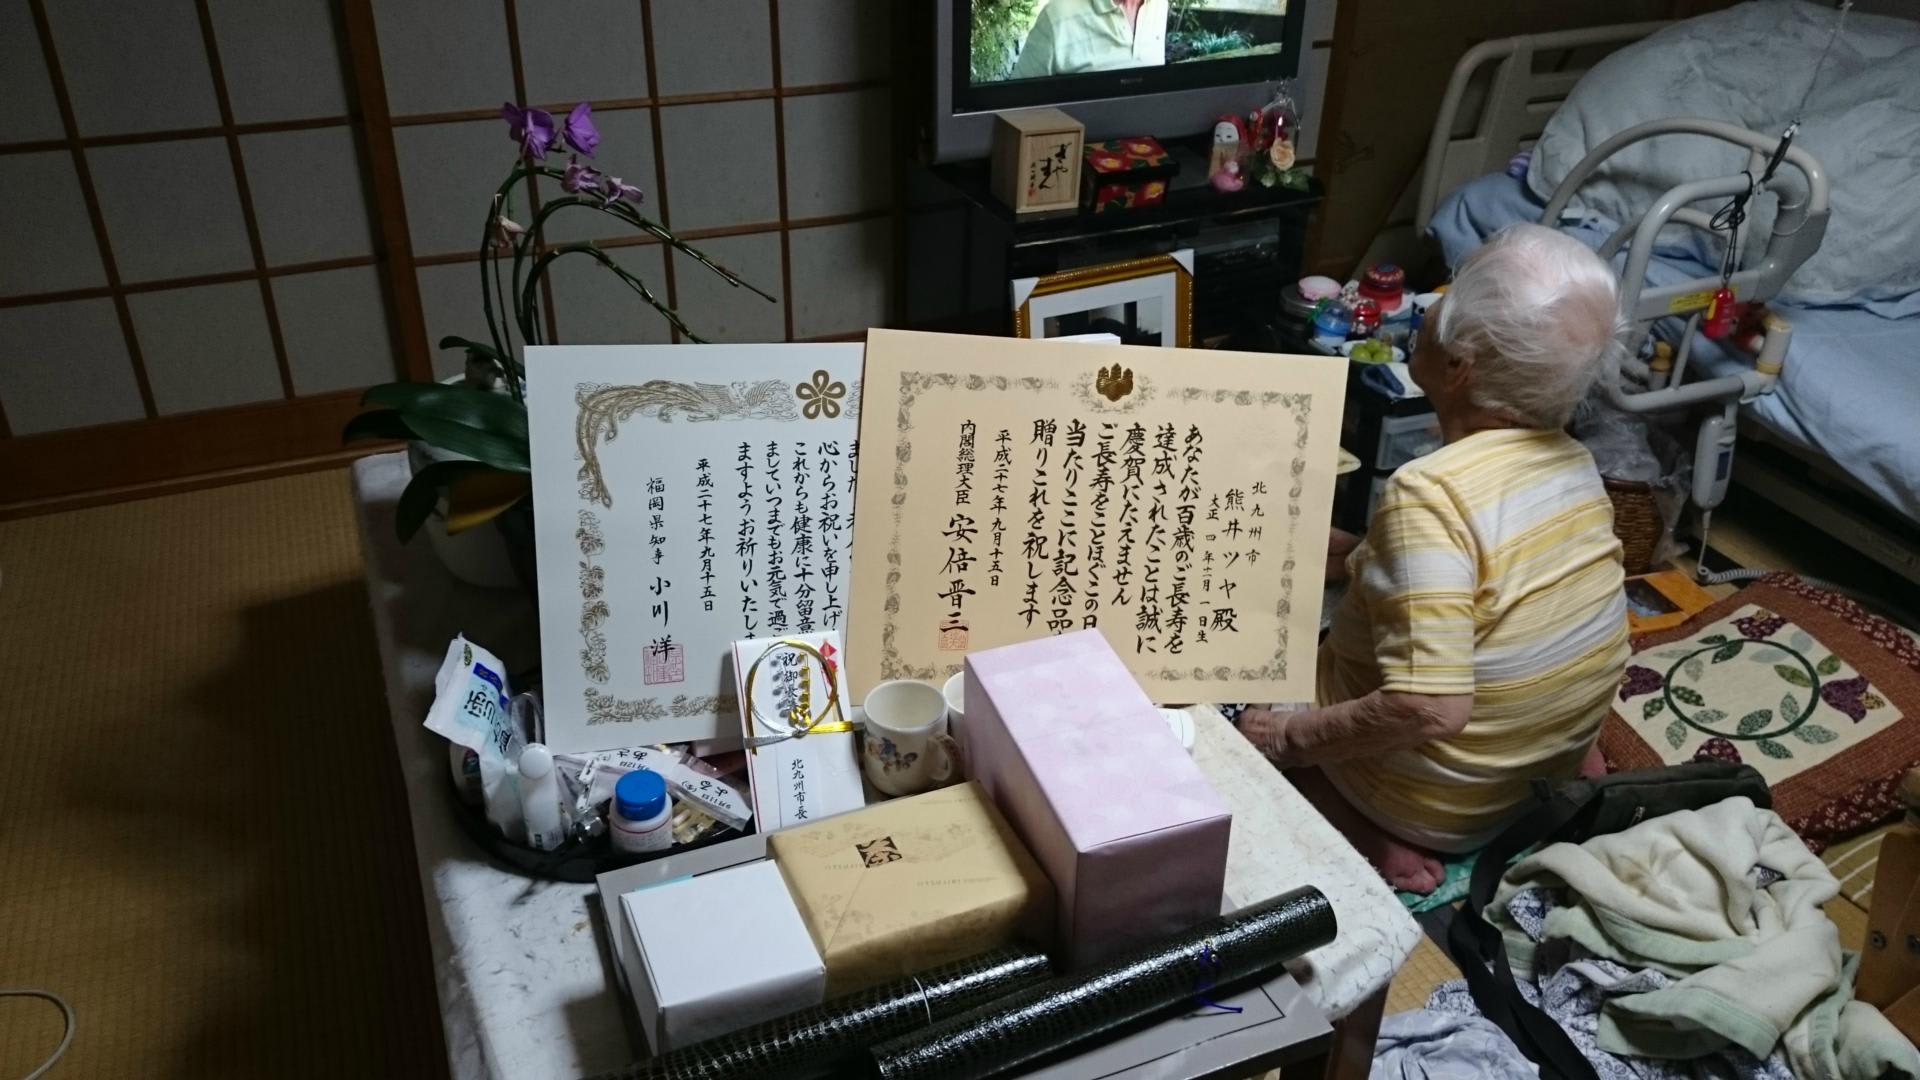 北九州市
熊井ツヤ殿
大正四年十二月一日生
あなたが百歳のご長寿を
達成されたことは誠に
慶賀にたえません
ご長寿をことほぐこの日
当たりここに記念品
贈りこれを祝します
平成二十七年九月十五日
内閣総理大臣 安倍晋三
心からお祝いを申し上げ
これからも健康に十分留意
ましていつまでもお元気で過ご
ますようお祈りいたしま
平成二十七年九月十五日
福岡県知事 小川洋
祝御長
北九州市長
ぎやまん
あさ
9月12日(土)
よる
9月11日(金)